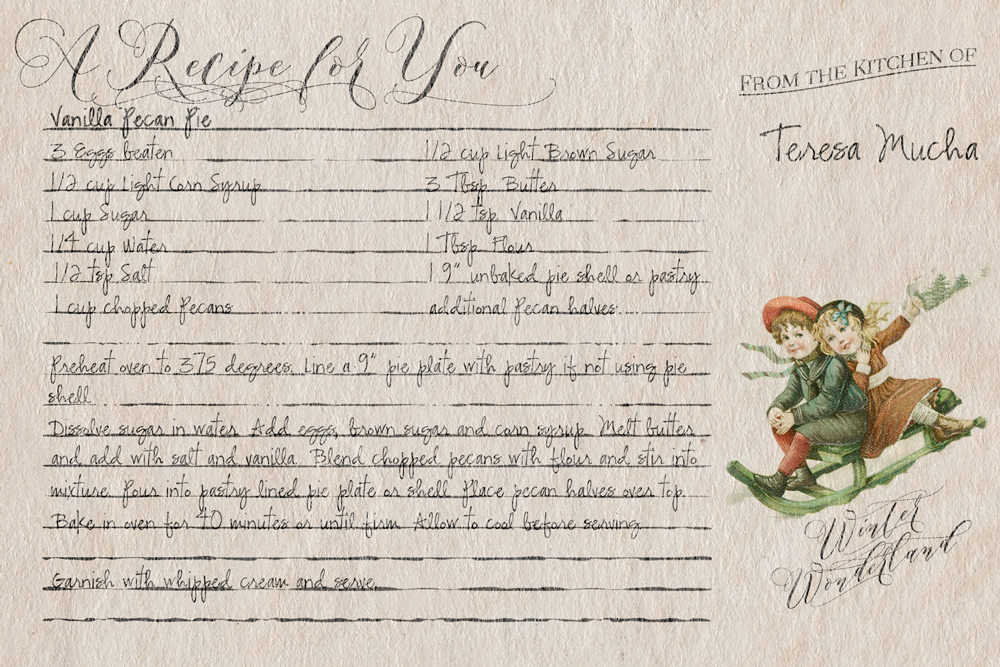 A Recipe for You
FROM THE KITCHEN OF
Teresa Mucha
Vanilla Pecan Pie
3 Eggs beaten
1/2 cup Light Brown Sugar
1/2 cup Light Corn Syrup
3 Tbsp. Butter
1 cup Sugar
1 1/2 tsp. Vanilla
1/4 cup Water
1 Tbsp. Flour
1/2 tsp Salt
1 9" unbaked pie shell or pastry
1 cup chopped Pecans
additional Pecan halves
Preheat oven to 375 degrees. Line a 9" pie plate with pastry if not using pie
shell.
Dissolve sugar in water. Add eggs, brown sugar and corn syrup. Melt butter
and add with salt and vanilla. Blend chopped pecans with flour and stir into
mixture. Pour into pastry lined pie plate or shell. Place pecan halves over top.
Bake in oven for 40 minutes or until firm. Allow to cool before serving.
Garnish with whipped cream and serve.
Winter
Wonderland